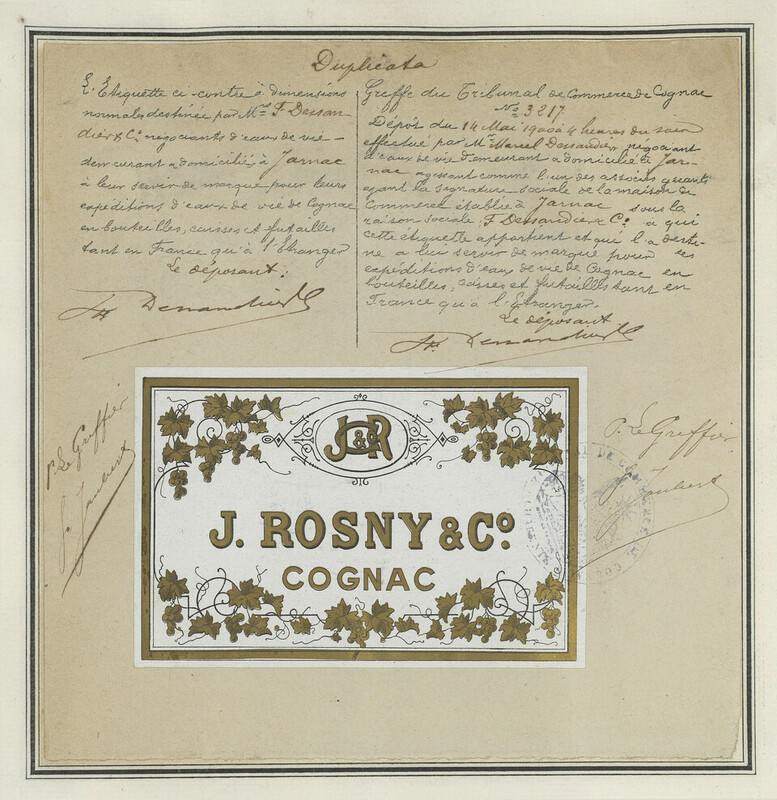 Duplicata
L'Etiquette ci-contre à dimensions
normales destinée par Mrs F Dessan-
dier & Co négociants d'eaux de vie
demeurant & domiciliés à Jarnac
à leur servir de marque pour leurs
expéditions d'eaux de vie de Cognac
en bouteilles, caisses et futailles
tant en France qu'à l'Etranger
Le déposant:
Greffe du Tribunal de Commerce de Cognac
No 3217
Dépôt du 14 Mai 1900 à 4 heures du soir
effectué par Mr Marcel Dessandier, négociant
d'eaux de vie demeurant & domicilié à Jar-
nac agissant comme l'un des associés gérants
ayant la signature sociale de la maison de
Commerce établie à Jarnac sous la
raison sociale; F Dessandier & Co à qui
cette étiquette appartient et qui l'a desti-
né à lui servir de marque pour ses
expéditions d'eaux de vie de Cognac en
bouteilles, caisses et futailles tant en
France qu'à l'Etranger.
Le déposant
P. Le Greffier
Jaubert
P. Le Greffier
Jaubert
J & Co R
J. ROSNY & Co
COGNAC